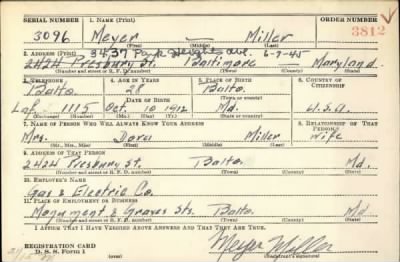 SERIAL NUMBER 1. NAME (Print) ORDER NUMBER
3096 Meyer Miller 3812
(First) (Middle) (Last)
3437 Park Heights Ave. 6-7-45
2. ADDRESS (Print)
2424 Presbury St. Baltimore Maryland
(Number and street or R. F. D. number) (Town) (County) (State)
3. TELEPHONE 4. AGE IN YEARS 5. PLACE OF BIRTH 6. COUNTRY OF CITIZENSHIP
Balto. 28 Balto.
DATE OF BIRTH (Town or county)
Laf. 1115 Oct. 10 1912 Md. U.S.A.
(Exchange) (Number) (Mo.) (Day) (Yr.) (State or country)
7. NAME OF PERSON WHO WILL ALWAYS KNOW YOUR ADDRESS 8. RELATIONSHIP OF THAT PERSON
Mrs. Dora Miller Wife
(Mr., Mrs., Miss) (First) (Middle) (Last)
9. ADDRESS OF THAT PERSON
2424 Presbury St. Balto. Md.
(Number and street or R. F. D. number) (Town) (County) (State)
10. EMPLOYER'S NAME
Gas & Electric Co.
11. PLACE OF EMPLOYMENT OR BUSINESS
Monument & Graves Sts. Balto. Md.
(Number and street or R. F. D. number) (Town) (County) (State)
I AFFIRM THAT I HAVE VERIFIED ABOVE ANSWERS AND THAT THEY ARE TRUE.
REGISTRATION CARD
D. S. S. Form 1
Meyer Miller
(Registrant's signature)